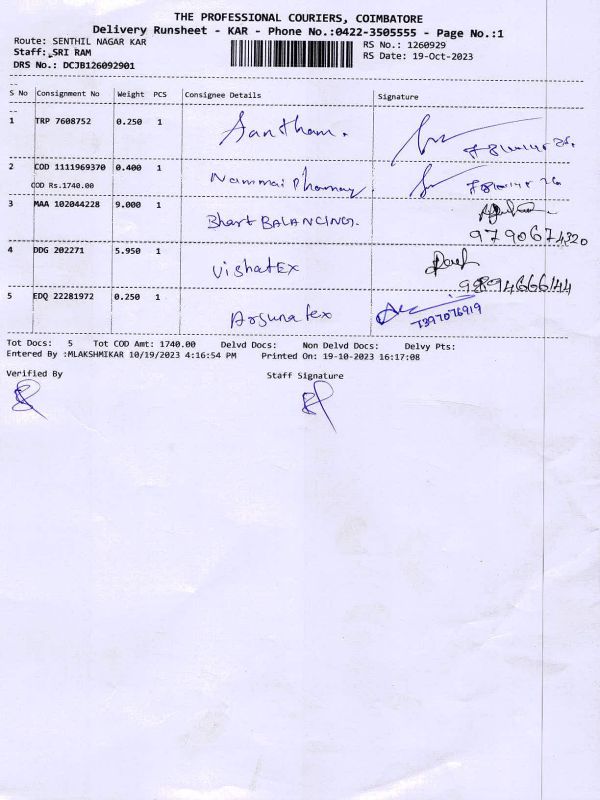 THE PROFESSIONAL COURIERS, COIMBATORE
Delivery Runsheet - KAR - Phone No.:0422-3505555 - Page No.:1
Route: SENTHIL NAGAR KAR RS No.: 1260929
Staff: SRI RAM RS Date: 19-Oct-2023
DRS No.: DCJB126092901
S No Consignment No Weight PCS Consignee Details Signature
1 TRP 7608752 0.250 1 Santham.
2 COD 1111969370 0.400 1 Nammai Pharmacy
COD Rs.1740.00
3 MAA 102044228 9.000 1 Bhart BALANCING.
9790674320
4 DDG 202271 5.950 1 VishatEX
9894666144
5 EDQ 22281972 0.250 1 Arjuna tex
7397076919
Tot Docs: 5 Tot COD Amt: 1740.00 Delvd Docs: Non Delvd Docs: Delvy Pts:
Entered By :MLAKSHMIKAR 10/19/2023 4:16:54 PM Printed On: 19-10-2023 16:17:08
Verified By Staff Signature